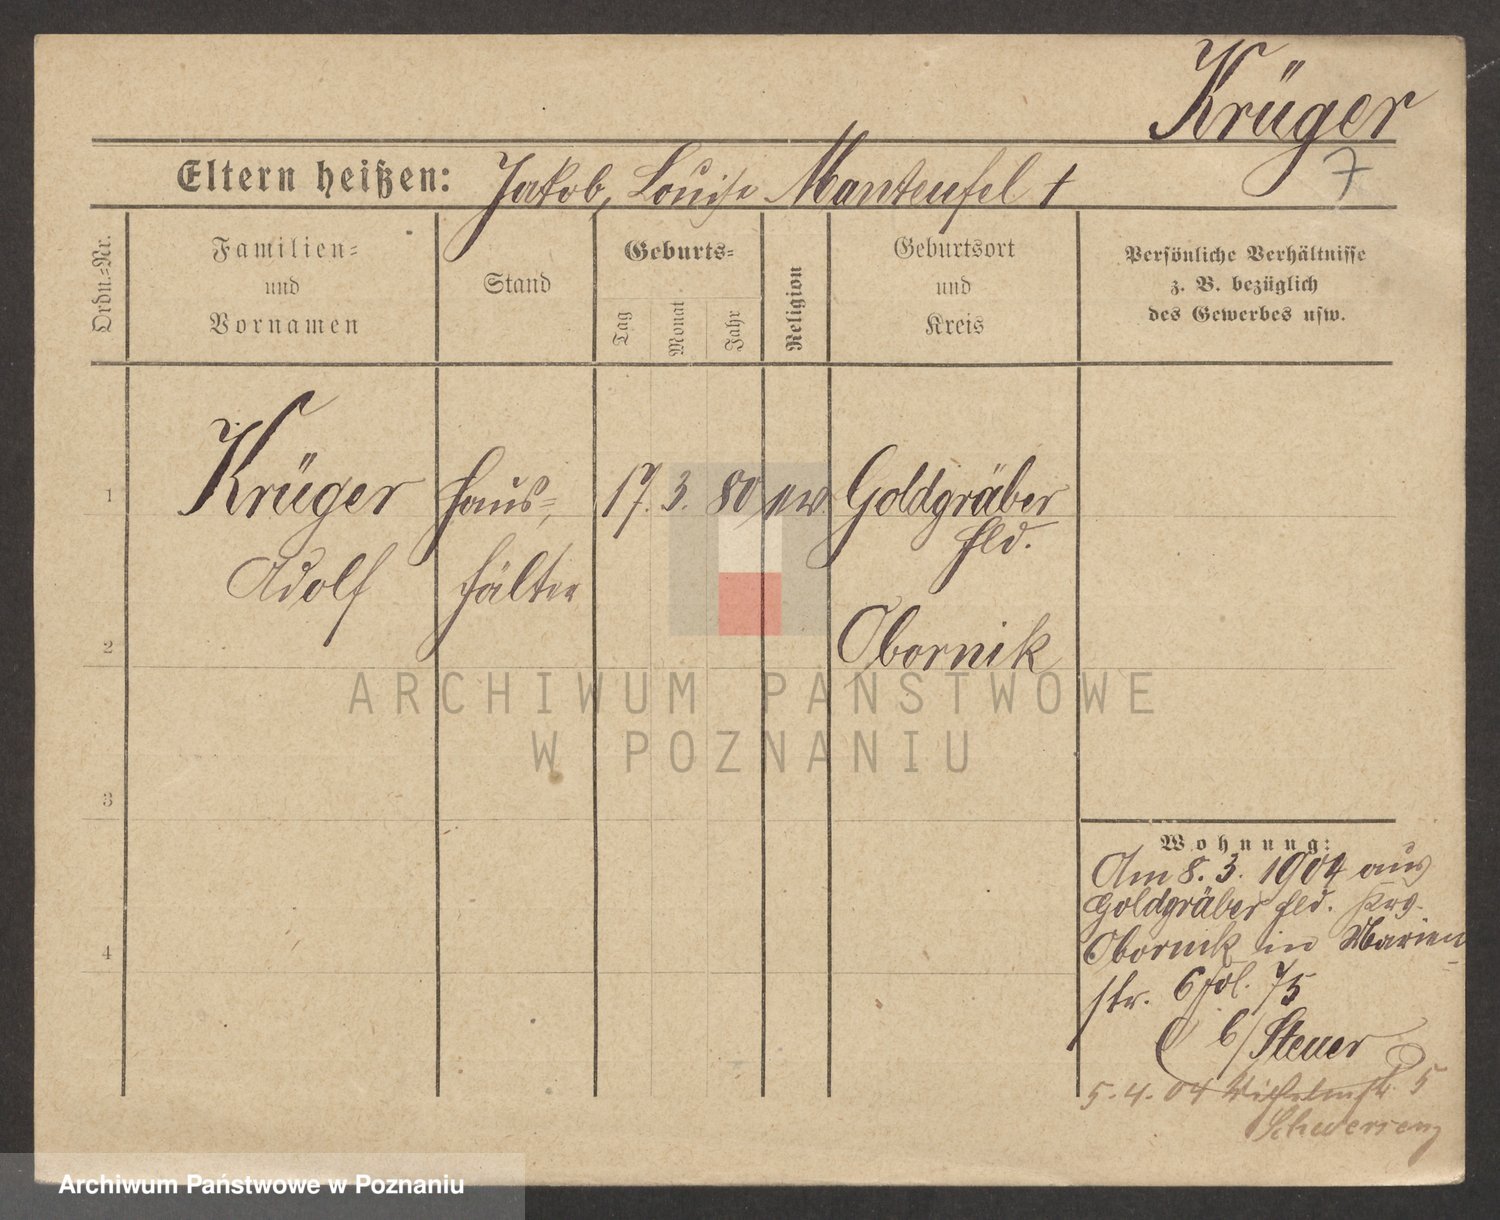 Krüger
7
Eltern heißen: Jakob, Louise Manteufel †
Ordn.=Nr.
Familien=
und
Vornamen
Stand
Geburts=
Tag
Monat
Jahr
Religion
Geburtsort
und
Kreis
Persönliche Verhältnisse
z. B. bezüglich
des Gewerbes usw.
1
Krüger Haus=, 17. 3. 80 ev Goldgräber
Hld.
Adolf hälter
2
Obornik
ARCHIWUM PAŃSTWOWE
W POZNANIU
3
Wohnung:
Am 8. 3. 1904 aus
Goldgräber Hld. Krs.
Obornik in Marien
4
str. 6 Fol. 75
b/ Steuer
5. 4. 04 Wilhelmstr. 5
Schwersenz
Archiwum Państwowe w Poznaniu